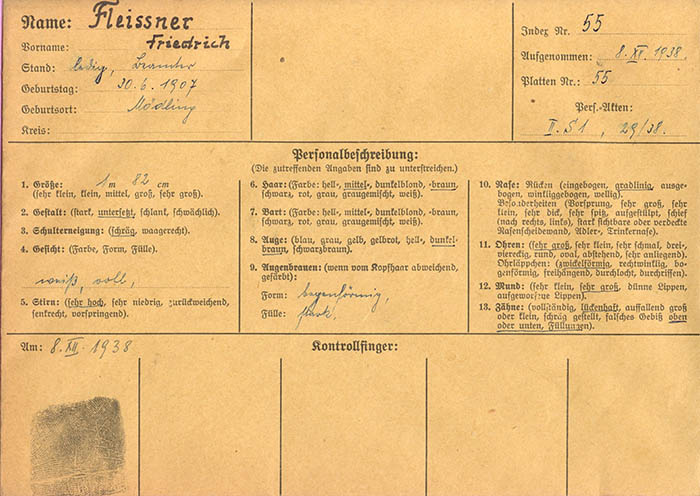 Name: Fleissner
Vorname: Friedrich
Stand: ledig, Beamter
Geburtstag: 30.6.1907
Geburtsort: Mödling
Kreis:
Index Nr. 55
Aufgenommen: 8. XII. 1938.
Platten Nr.: 55
Pers.-Akten:
II. S1, 29/38.
Personalbeschreibung:
(Die zutreffenden Angaben sind zu unterstreichen.)
1. Größe: 1 m 82 cm
(sehr klein, klein, mittel, groß, sehr groß).
2. Gestalt: (stark, untersetzt, schlank, schwächlich).
3. Schulterneigung: (schräg, waagerecht).
4. Gesicht: (Farbe, Form, Fülle).
weiß, voll,
5. Stirn: (sehr hoch, sehr niedrig, zurückweichend,
senkrecht, vorspringend).
6. Haar: (Farbe: hell-, mittel-, dunkelblond, -braun,
schwarz, rot, grau, graugemischt, weiß).
7. Bart: (Farbe: hell-, mittel-, dunkelblond, -braun,
schwarz, rot, grau, graugemischt, weiß).
8. Auge: (blau, grau, gelb, gelbrot, hell-, dunkel-
braun, schwarzbraun).
9. Augenbrauen: (wenn vom Kopfhaar abweichend,
gefärbt):
Form: bogenförmig,
Fülle: stark.
10. Nase: Rücken (eingebogen, gradlinig, ausge-
bogen, winkliggebogen, wellig).
Besonderheiten (Vorsprung, sehr groß, sehr
klein, sehr dick, sehr spitz, aufgestülpt, schief
(nach rechts, links), stark sichtbare oder verdeckte
Nasenscheidewand, Adler-, Trinkernase).
11. Ohren: (sehr groß, sehr klein, sehr schmal, drei-,
viereckig, rund, oval, abstehend, sehr anliegend).
Ohrläppchen: (zwickelförmig, rechtwinklig, bo-
genförmig, freihängend, durchlocht, durchrissen).
12. Mund: (sehr klein, sehr groß, dünne Lippen,
aufgeworfene Lippen).
13. Zähne: (vollständig, lückenhaft, auffallend groß
oder klein, schräg gestellt, falsches Gebiß oben
oder unten, Füllungen).
Am: 8. XII. 1938
Kontrollfinger: